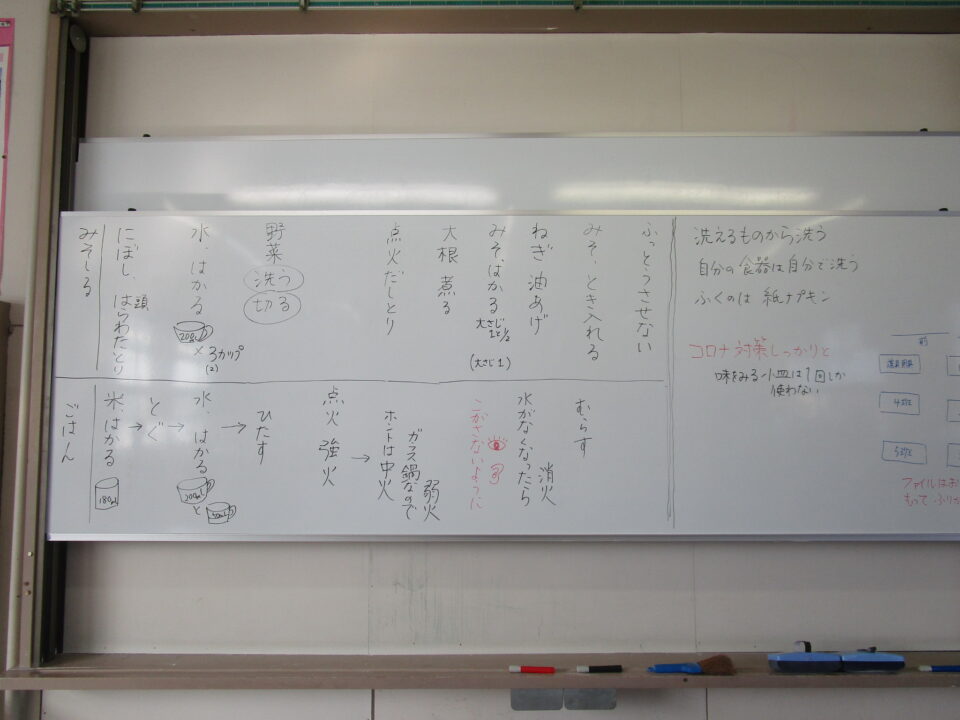 みそしる
にぼし、はらわたとり
頭
水、はかる
200cc
×3カップ
(2)
野菜
洗う
切る
点火だしとり
大根 煮る
みそ、はかる
大さじ
1と1/2
(大さじ1)
ねぎ 油あげ
みそ、とき入れる
ふっとうさせない
ごはん
米、はかる
180cc
→
とぐ
→
水、はかる
200cc
と
→
ひたす
点火 強火
→
ホントは中火
ガラス鍋なので
弱火
こがさないように
水がなくなったら
消火
むらす
洗えるものから洗う
自分の食器は自分で洗う
ふくのは 紙ナプキン
コロナ対策しっかりと
味をみる小皿は1回しか
使わない
前
4班
ファイルは
もって